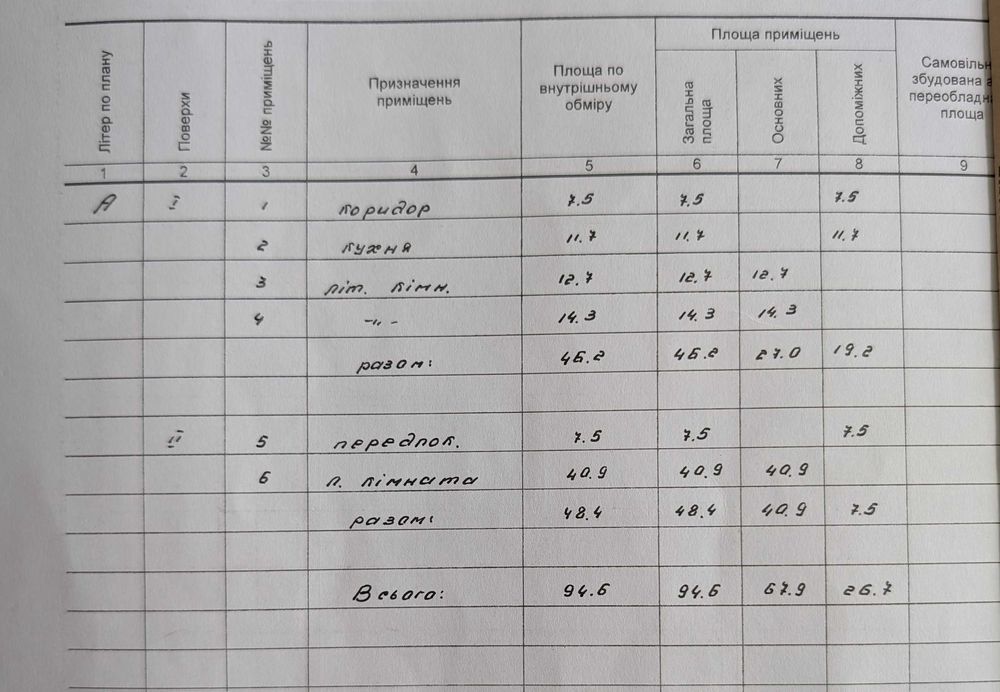 Літер по плану
Поверхи
№№ приміщень
Призначення
приміщень
Площа по
внутрішньому
обміру
Площа приміщень
Загальна
площа
Основних
Допоміжних
Самовільн
збудована а
переобладн
площа
1 2 3 4 5 6 7 8 9
А I 1 коридор 7.5 7.5 7.5
2 кухня 11.7 11.7 11.7
3 літ. кімн. 12.7 12.7 12.7
4 -„- 14.3 14.3 14.3
разом: 46.2 46.2 27.0 19.2
II 5 передпок. 7.5 7.5 7.5
6 л. кімната 40.9 40.9 40.9
разом: 48.4 48.4 40.9 7.5
Всього: 94.6 94.6 67.9 26.7